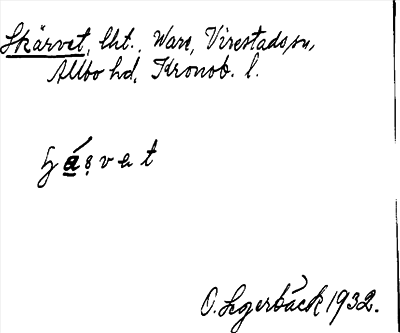 Skärvet, lht., Ware, Virestads sn,
Allbo hd, Kronob. l.
O. Lgerbäck 1932.